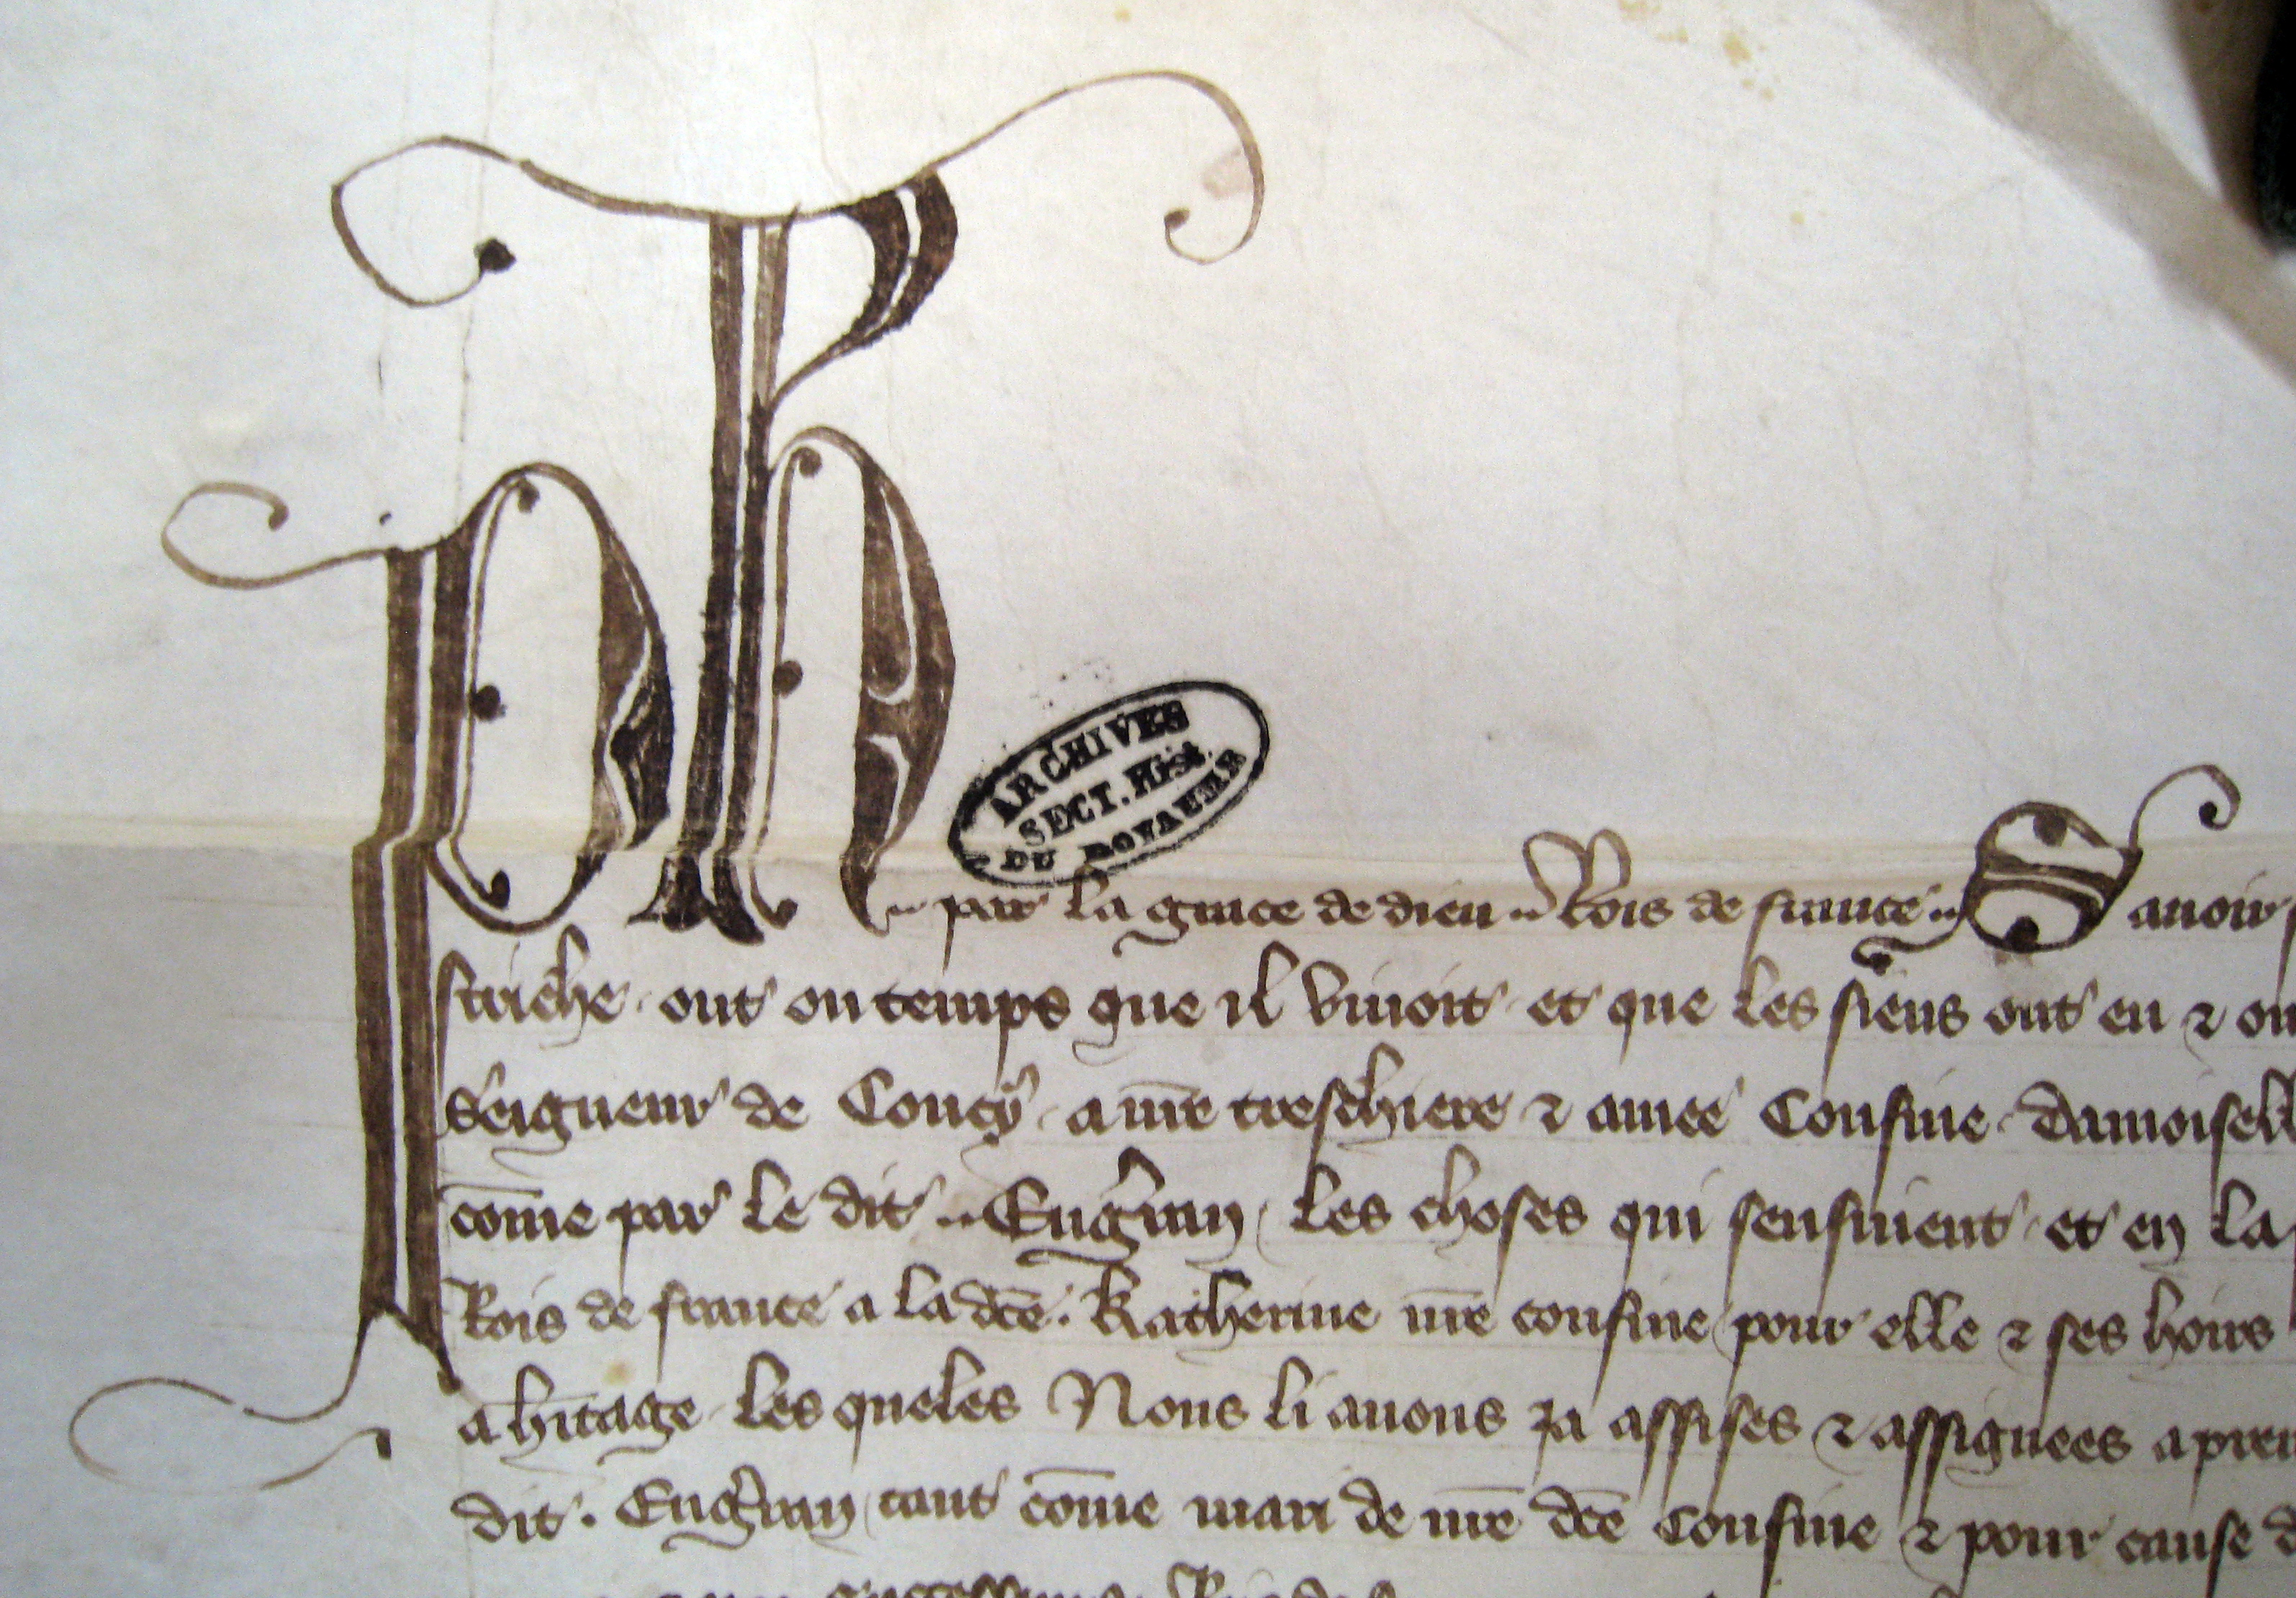 Ph
ARCHIVES
SECT. Hist.
DU ROYAUME
par la grace de dieu Rois de france Sauoir
striche ont ou temps que il viuoit et que les siens ont eu ⁊
Seigneur de Coucy a nr̄e treschiere ⁊ amee Cousine damoisell
cōme par le dit Engˀran les choses qui sensuient et en la
Rois de france a la dc̄e Katherine nr̄e cousine pour elle ⁊ ses hoirs
a hˀitage les queles Nous li auons ja assises ⁊ assignees a pren
dit Engˀran tant cōme mari de nr̄e dc̄e Cousine ⁊ pour cause d